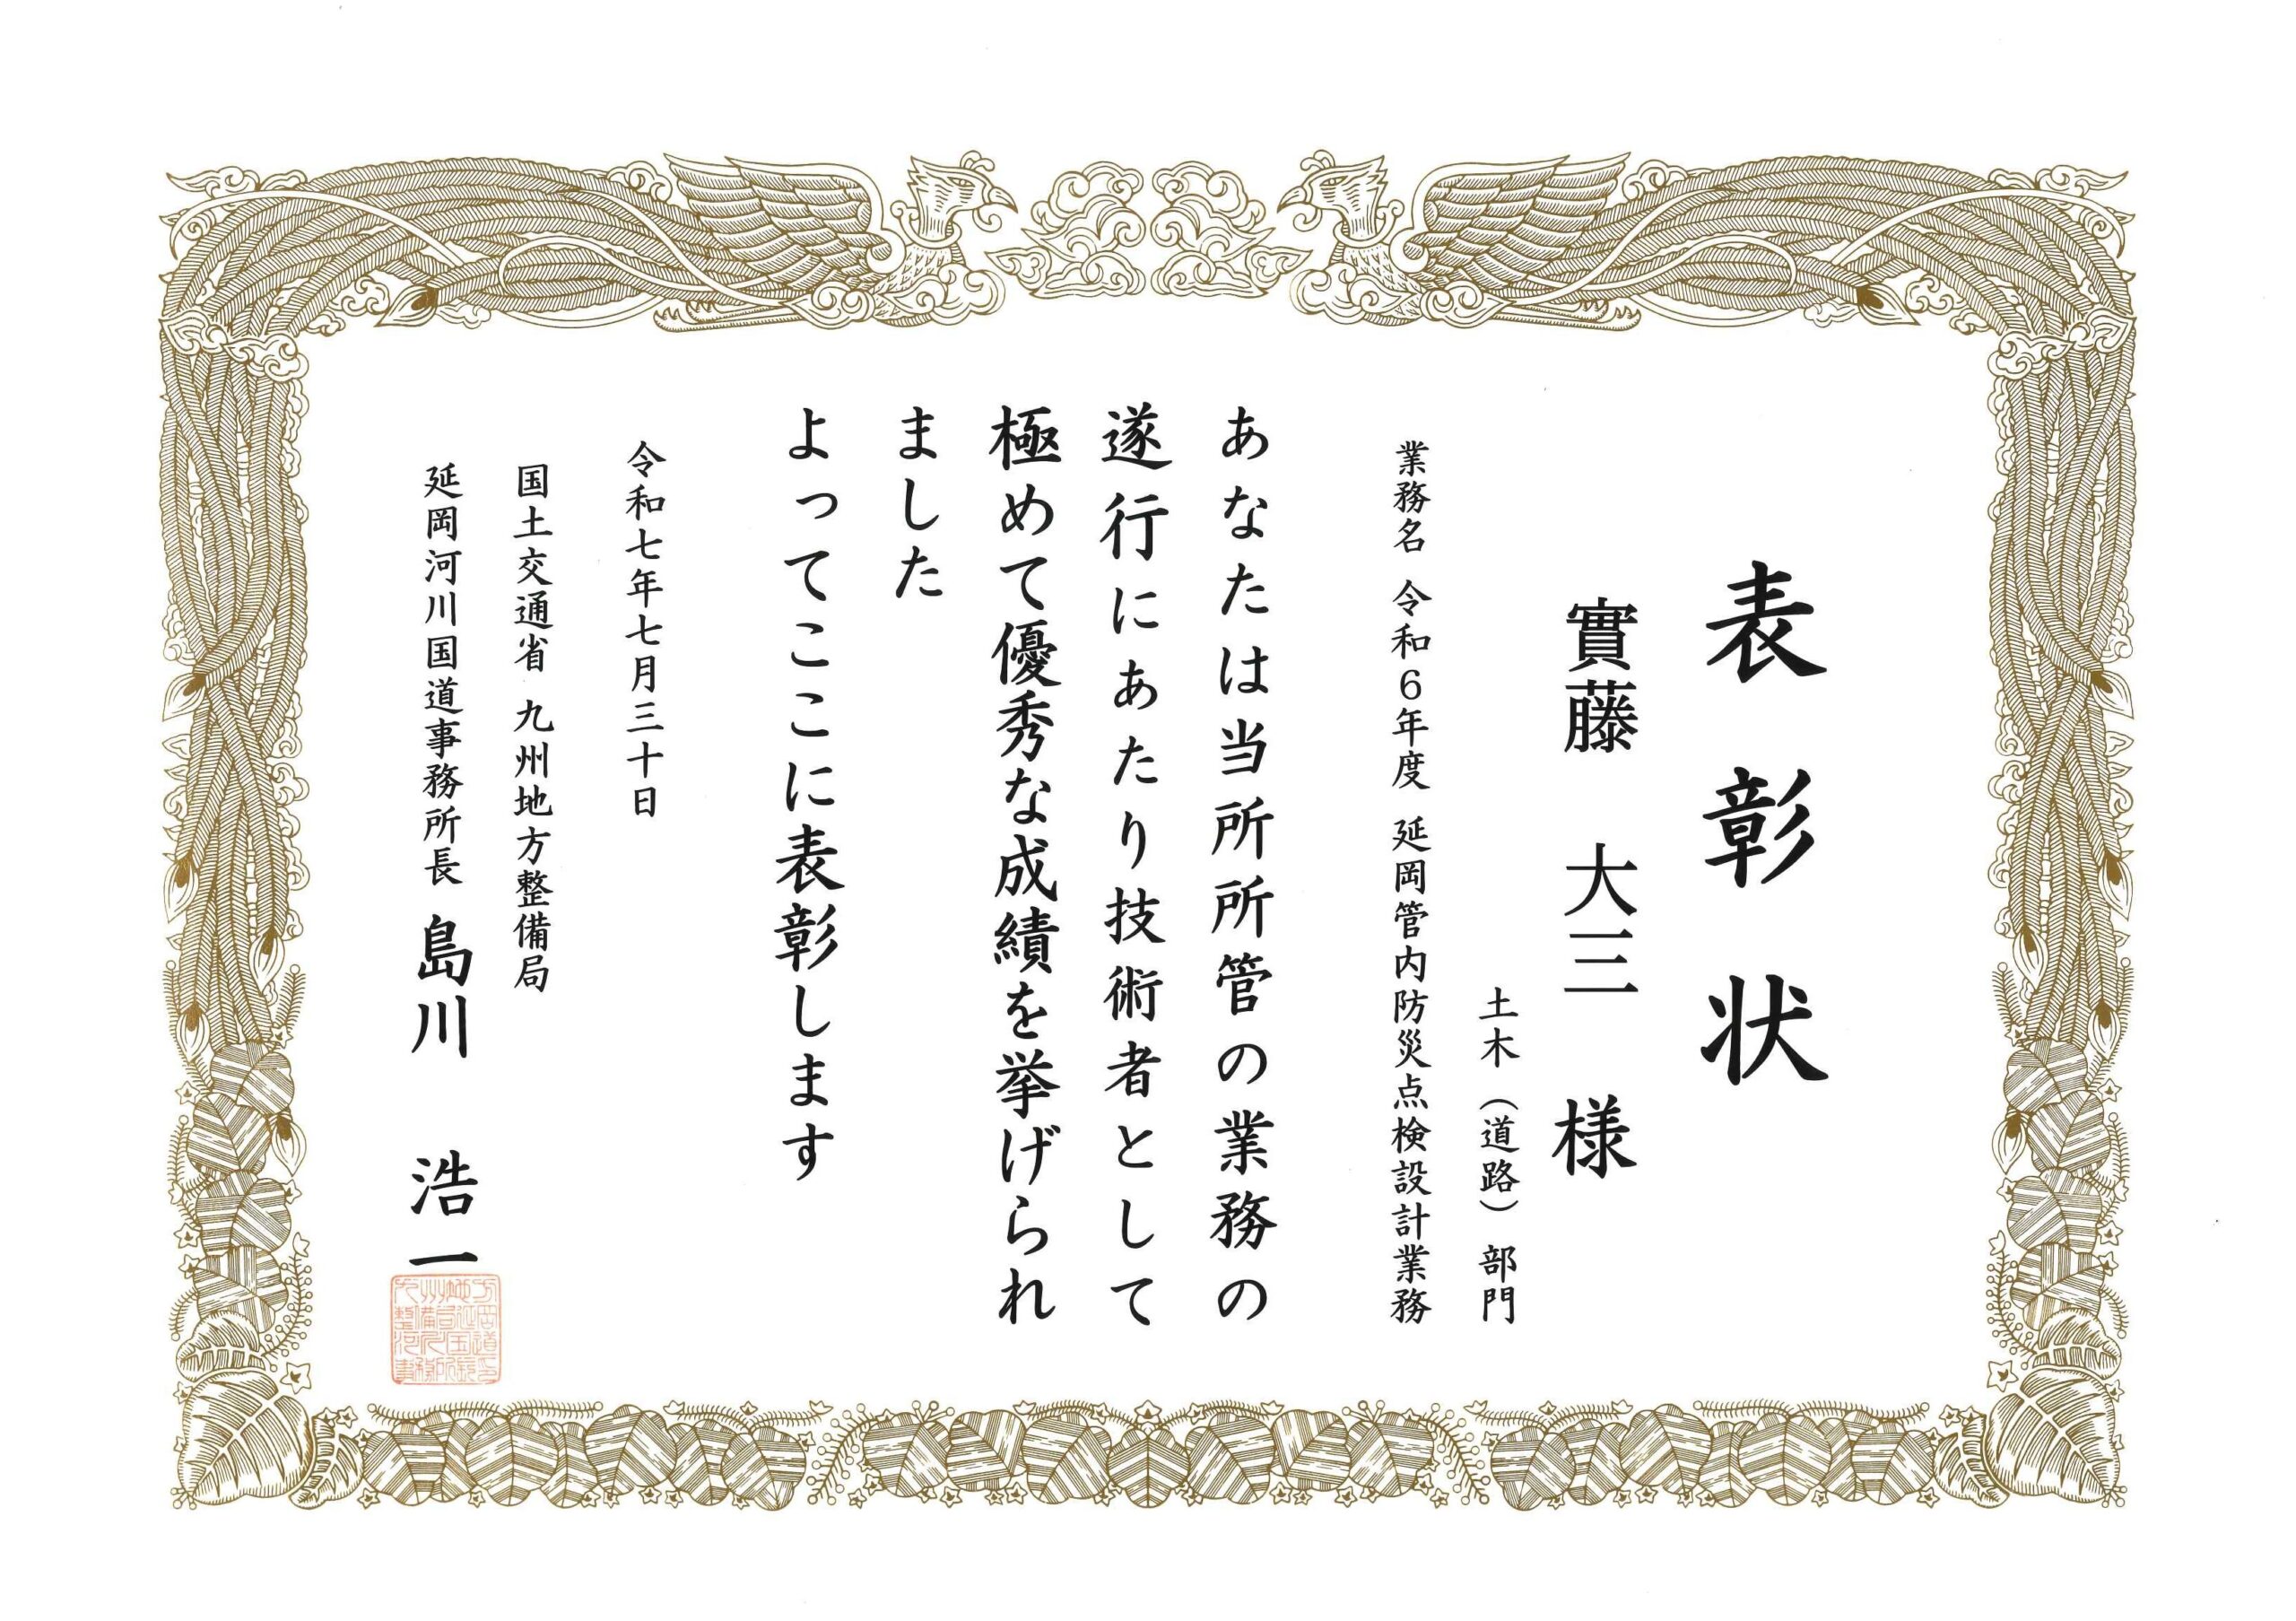 表彰状
實藤 大三 様
土木（道路）部門
業務名 令和6年度 延岡管内防災点検設計業務
あなたは当所所管の業務の
遂行にあたり技術者として
極めて優秀な成績を挙げられ
ました
よってここに表彰します
令和七年七月三十日
国土交通省 九州地方整備局
延岡河川国道事務所長 島川 浩一